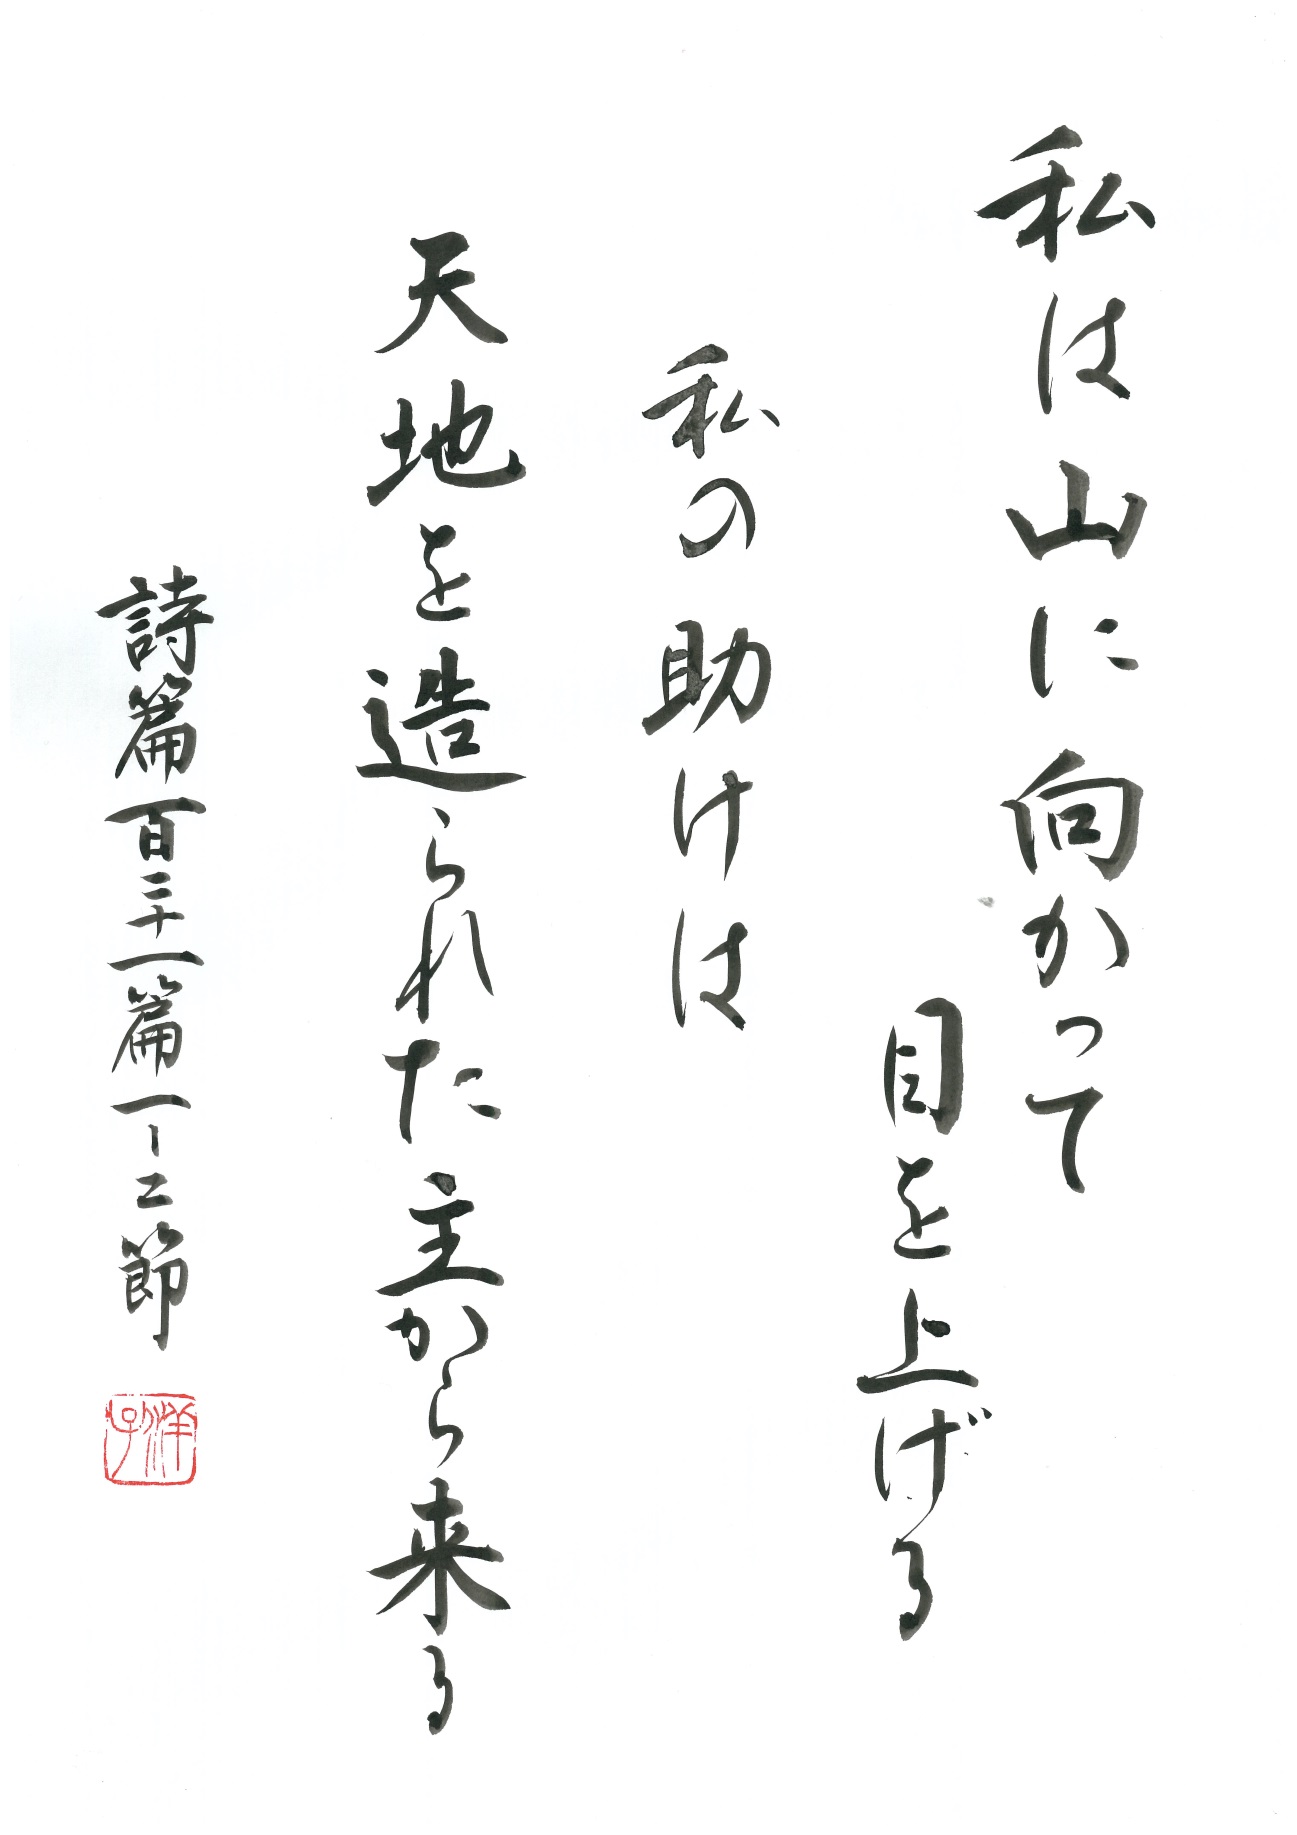 私は山に向かって
目を上げる
私の助けは
天地を造られた主から来る
詩篇百二十一篇一-二節
洋子